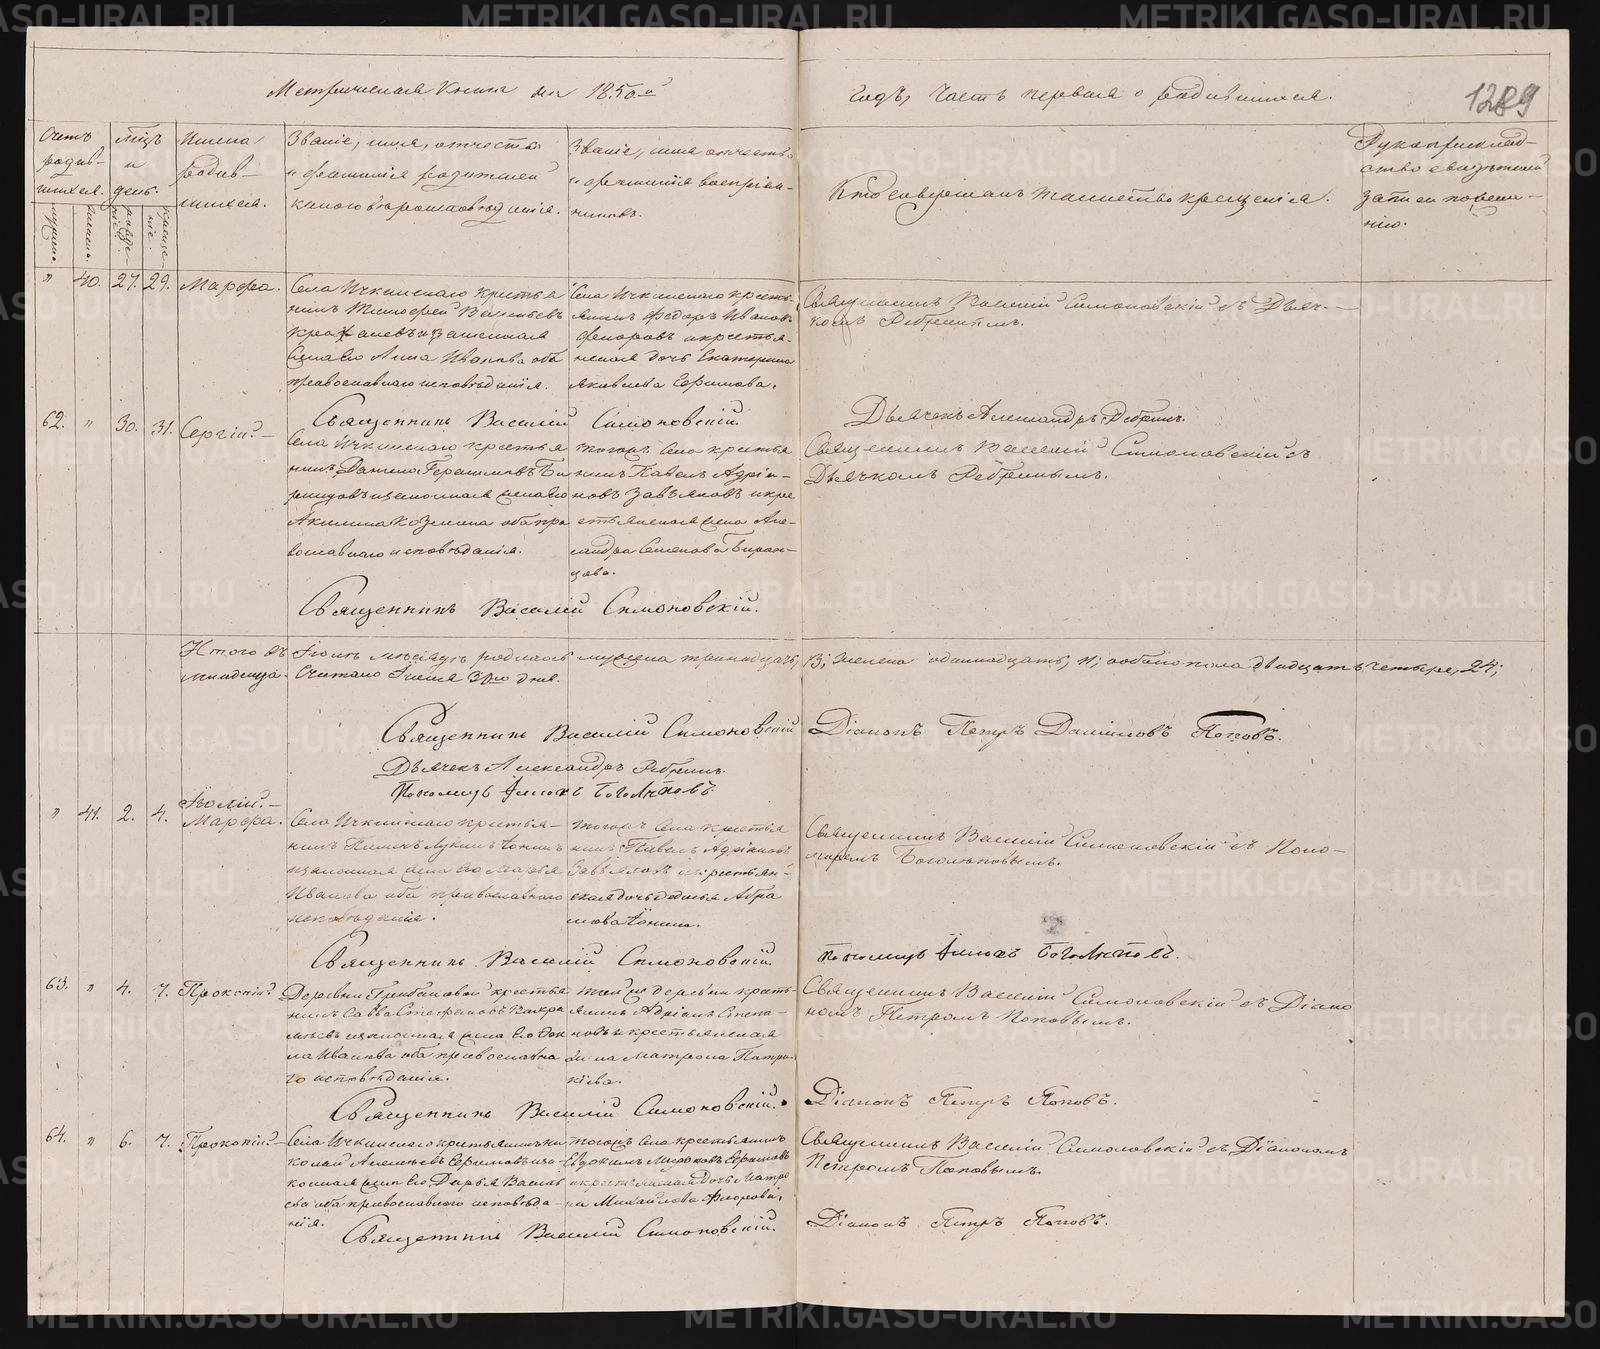 Метрическая Книга на 1850-й
годъ, Часть первая о родившихся.
1289
Счетъ родив-шихся.
мужеска.
женска.
Мцъ и день.
рожде-нія.
креще-нія.
Имена родив-шихся.
Званіе, имя, отчество
и фамилія родителей
и какого вѣроисповѣданія.
Званіе, имя отчество
и фамилія воспріем-
никовъ.
Кто совершалъ таинство крещенія.
Рукоприклад-
ство свидѣтелей
записи по жела-
нію.
" 40. 27. 29. Марфа.
Села Ичкинскаго крестья
нинъ Тимофей Васильевъ
и законная
жена его Анна Иванова оба
православнаго исповѣданія.
Села Ичкинскаго кресть-
янинъ Федоръ Ивановъ
и крестья-
нская дочь Екатерина
Яковлева Ефимова.
Священникъ Василій Симоновскій съ Дьяч-
комъ Ребринымъ.
Священникъ Василій Симоновскій.
Дьячекъ Александръ Ребринъ.
62. " 30. 31. Сергій.
Села Ичкинскаго крестья
нинъ Герасимовъ
и законная жена его
Акилина Козмина оба пра
вославнаго исповѣданія.
тогожъ села крестья
нинъ Павелъ Адріа-
новъ Завьяловъ и кре
стьянская жена Але-
ксандра Семенова Биран-
цова.
Священникъ Василій Симоновскій съ
Дьячкомъ Ребринымъ.
Священникъ Василій Симоновскій.
Итого въ Іюнѣ мѣсяцѣ родилось мужска тринадцать, 13; женска одиннадцать, 11; обоего пола двадцать четыре, 24;
Священникъ Василій Симоновскій
Діаконъ Петръ Даниловъ Поповъ.
Дьячекъ Александръ Ребринъ.
Пономарь Боголѣповъ
Іюлій.
" 41. 2. 4. Марфа.
Села Ичкинскаго крестья-
нинъ Лукинъ
и законная жена его Марья
Иванова оба православнаго
исповѣданія.
тогожъ села крестья
нинъ Павелъ Адріановъ
Завьяловъ и крестьян-
ская дочь Абра
мова
Священникъ Василій Симоновскій съ Поно-
маремъ Боголѣповымъ.
Священникъ Василій Симоновскій
Пономарь Боголѣповъ.
63. " 4. 7. Прокопій
Деревни крестья
нинъ Савва Стефановъ
и законная жена его
Иванова оба православна
го исповѣданія.
той же деревни кресть-
янинъ Адріанъ Степа-
новъ и крестьянская
жена Матрона Патри-
кіева.
Священникъ Василій Симоновскій съ Діако
номъ Петромъ Поповымъ.
Священникъ Василій Симоновскій.
Діаконъ Петръ Поповъ.
64. " 6. 7. Прокопій
Села Ичкинскаго крестьянинъ Ни
колай Алексѣевъ Ефимовъ и за-
конная жена его Дарья Василь
ева оба православнаго исповѣда-
нія.
тогожъ села крестьянинъ
Евдокимъ Мироновъ Ефимовъ
и крестьянская дочь Матро
на Михайлова
Священникъ Василій Симоновскій съ Діакономъ
Петромъ Поповымъ.
Священникъ Василій Симоновскій.
Діаконъ Петръ Поповъ.
METRIKI.GASO-URAL.RU